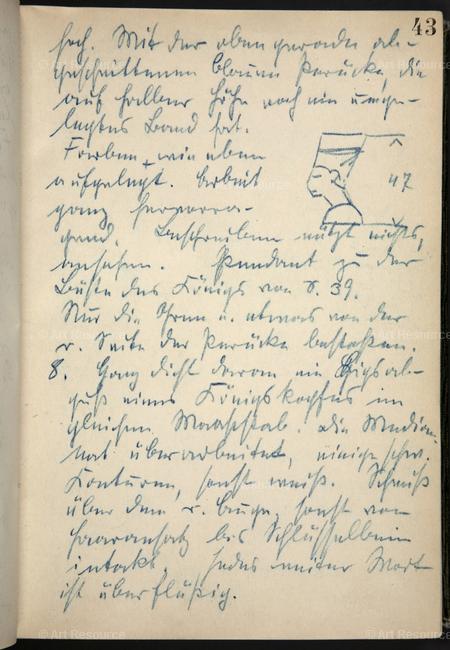 43
hoch. Mit der oben gerade ab-
geschnittenen blauen Perücke, die
auf halber Höhe noch ein umge-
legtes Band hat.
Farben wie eben
aufgelegt. Arbeit
47
ganz hervorra-
gend. Beschreiben nützt nichts,
ansehen. Pendant zu der
Büste des Königs von S. 39.
Nur die Ohren u. etwas von der
r. Seite der Perücke bestoßen.
8. Ganz dicht daran ein Gipsab-
guß eines Königskopfes im
gleichen Maaßstab. Die
überarbeitet, einige schw.
Konturen, sonst weiß. Schmiß
über dem r. Auge, sonst vom
Haaransatz bis Schlüsselbein
intakt. Jedes weitere Wort
ist überflüßig.
© Art Resource